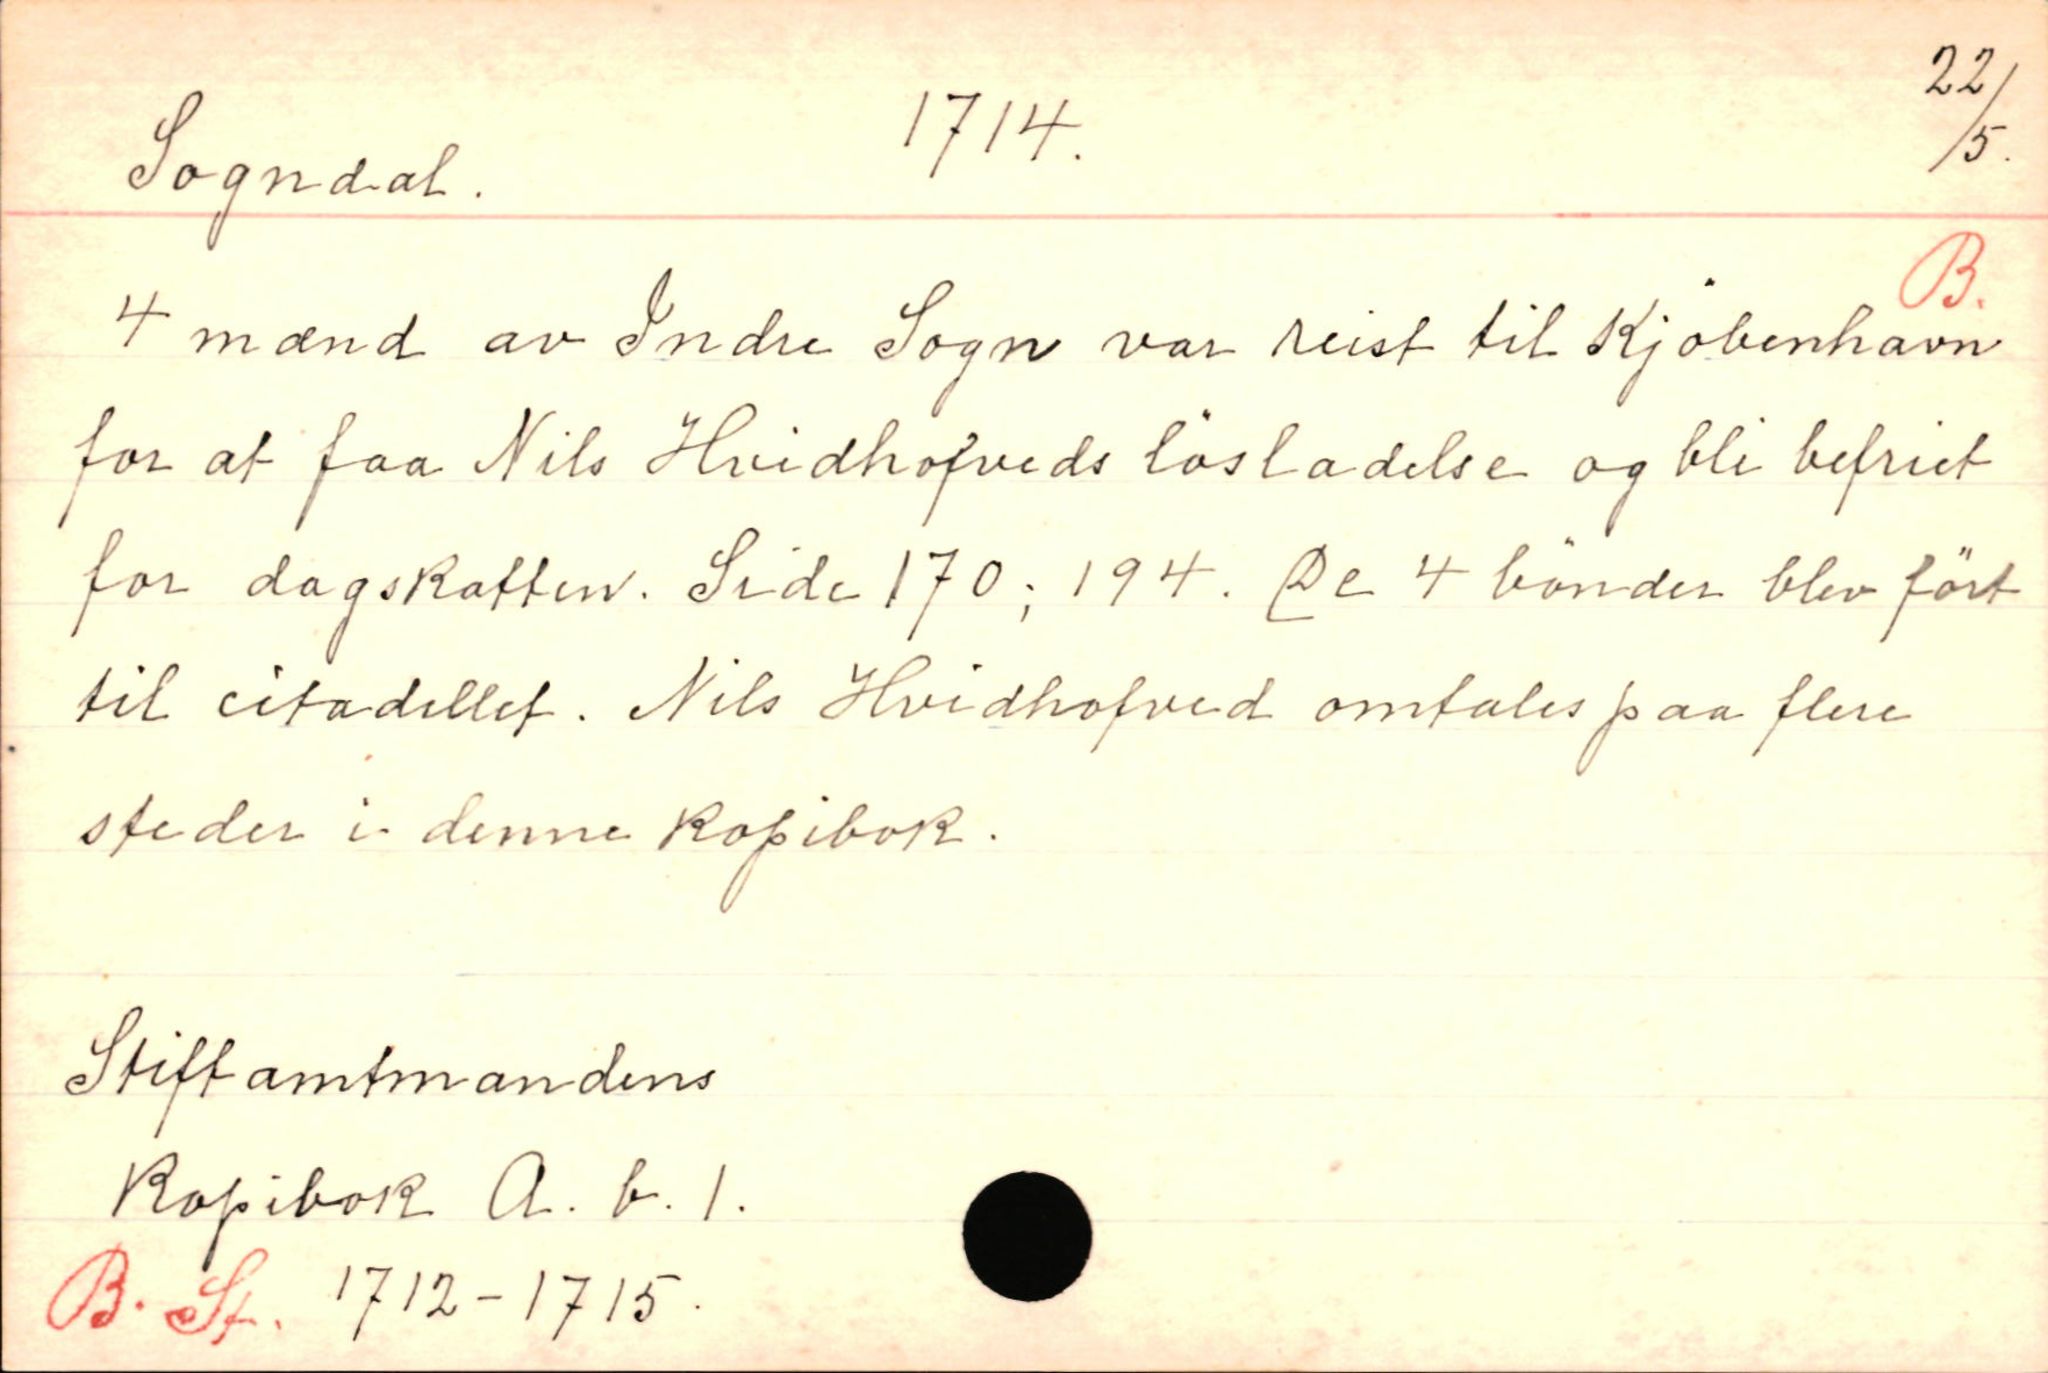 Sogndal. 1714. 22/5.
B.
4 mænd av Indre Sogn var reist til Kjöbenhavn
for at faa Nils Hvidhofveds lösladelse og bli befriet
for dagskatten. Side 170; 194. De 4 bönder blev fört
til citadellet. Nils Hvidhofved omtales paa flere
steder i denne kopibok.
Stiftamtmandens
Kopibok A. b. 1.
B. St. 1712-1715.